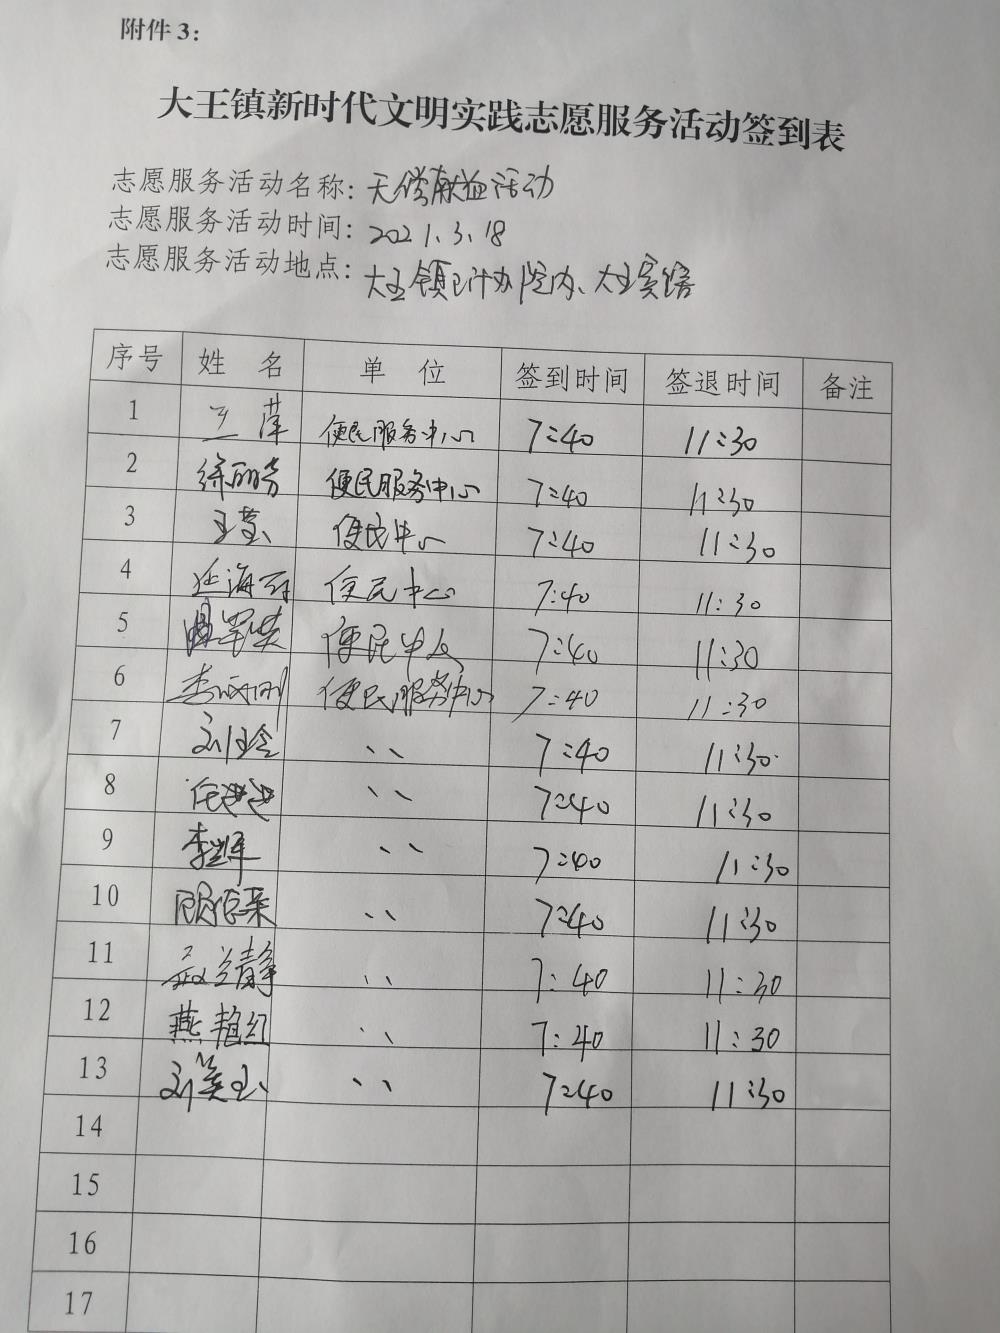 附件 3：
大王镇新时代文明实践志愿服务活动签到表
志愿服务活动名称：无偿献血活动
志愿服务活动时间：2021.3.18
志愿服务活动地点：大王镇计办院内、大王宾馆
序号 姓 名 单 位 签到时间 签退时间 备注
1 王萍 便民服务中心 7:40 11:30
2 徐丽芳 便民服务中心 7:40 11:30
3 王莹 便民中心 7:40 11:30
4 延海 便民中心 7:40 11:30
5 便民中心 7:40 11:30
6 李 便民服务中心 7:40 11:30
7 刘玲 、、 7:40 11:30
8 任进进 、、 7:40 11:30
9 李 、、 7:40 11:30
10 顾 、、 7:40 11:30
11 兰静 、、 7:40 11:30
12 燕艳红 、、 7:40 11:30
13 刘英玉 、、 7:40 11:30
14
15
16
17